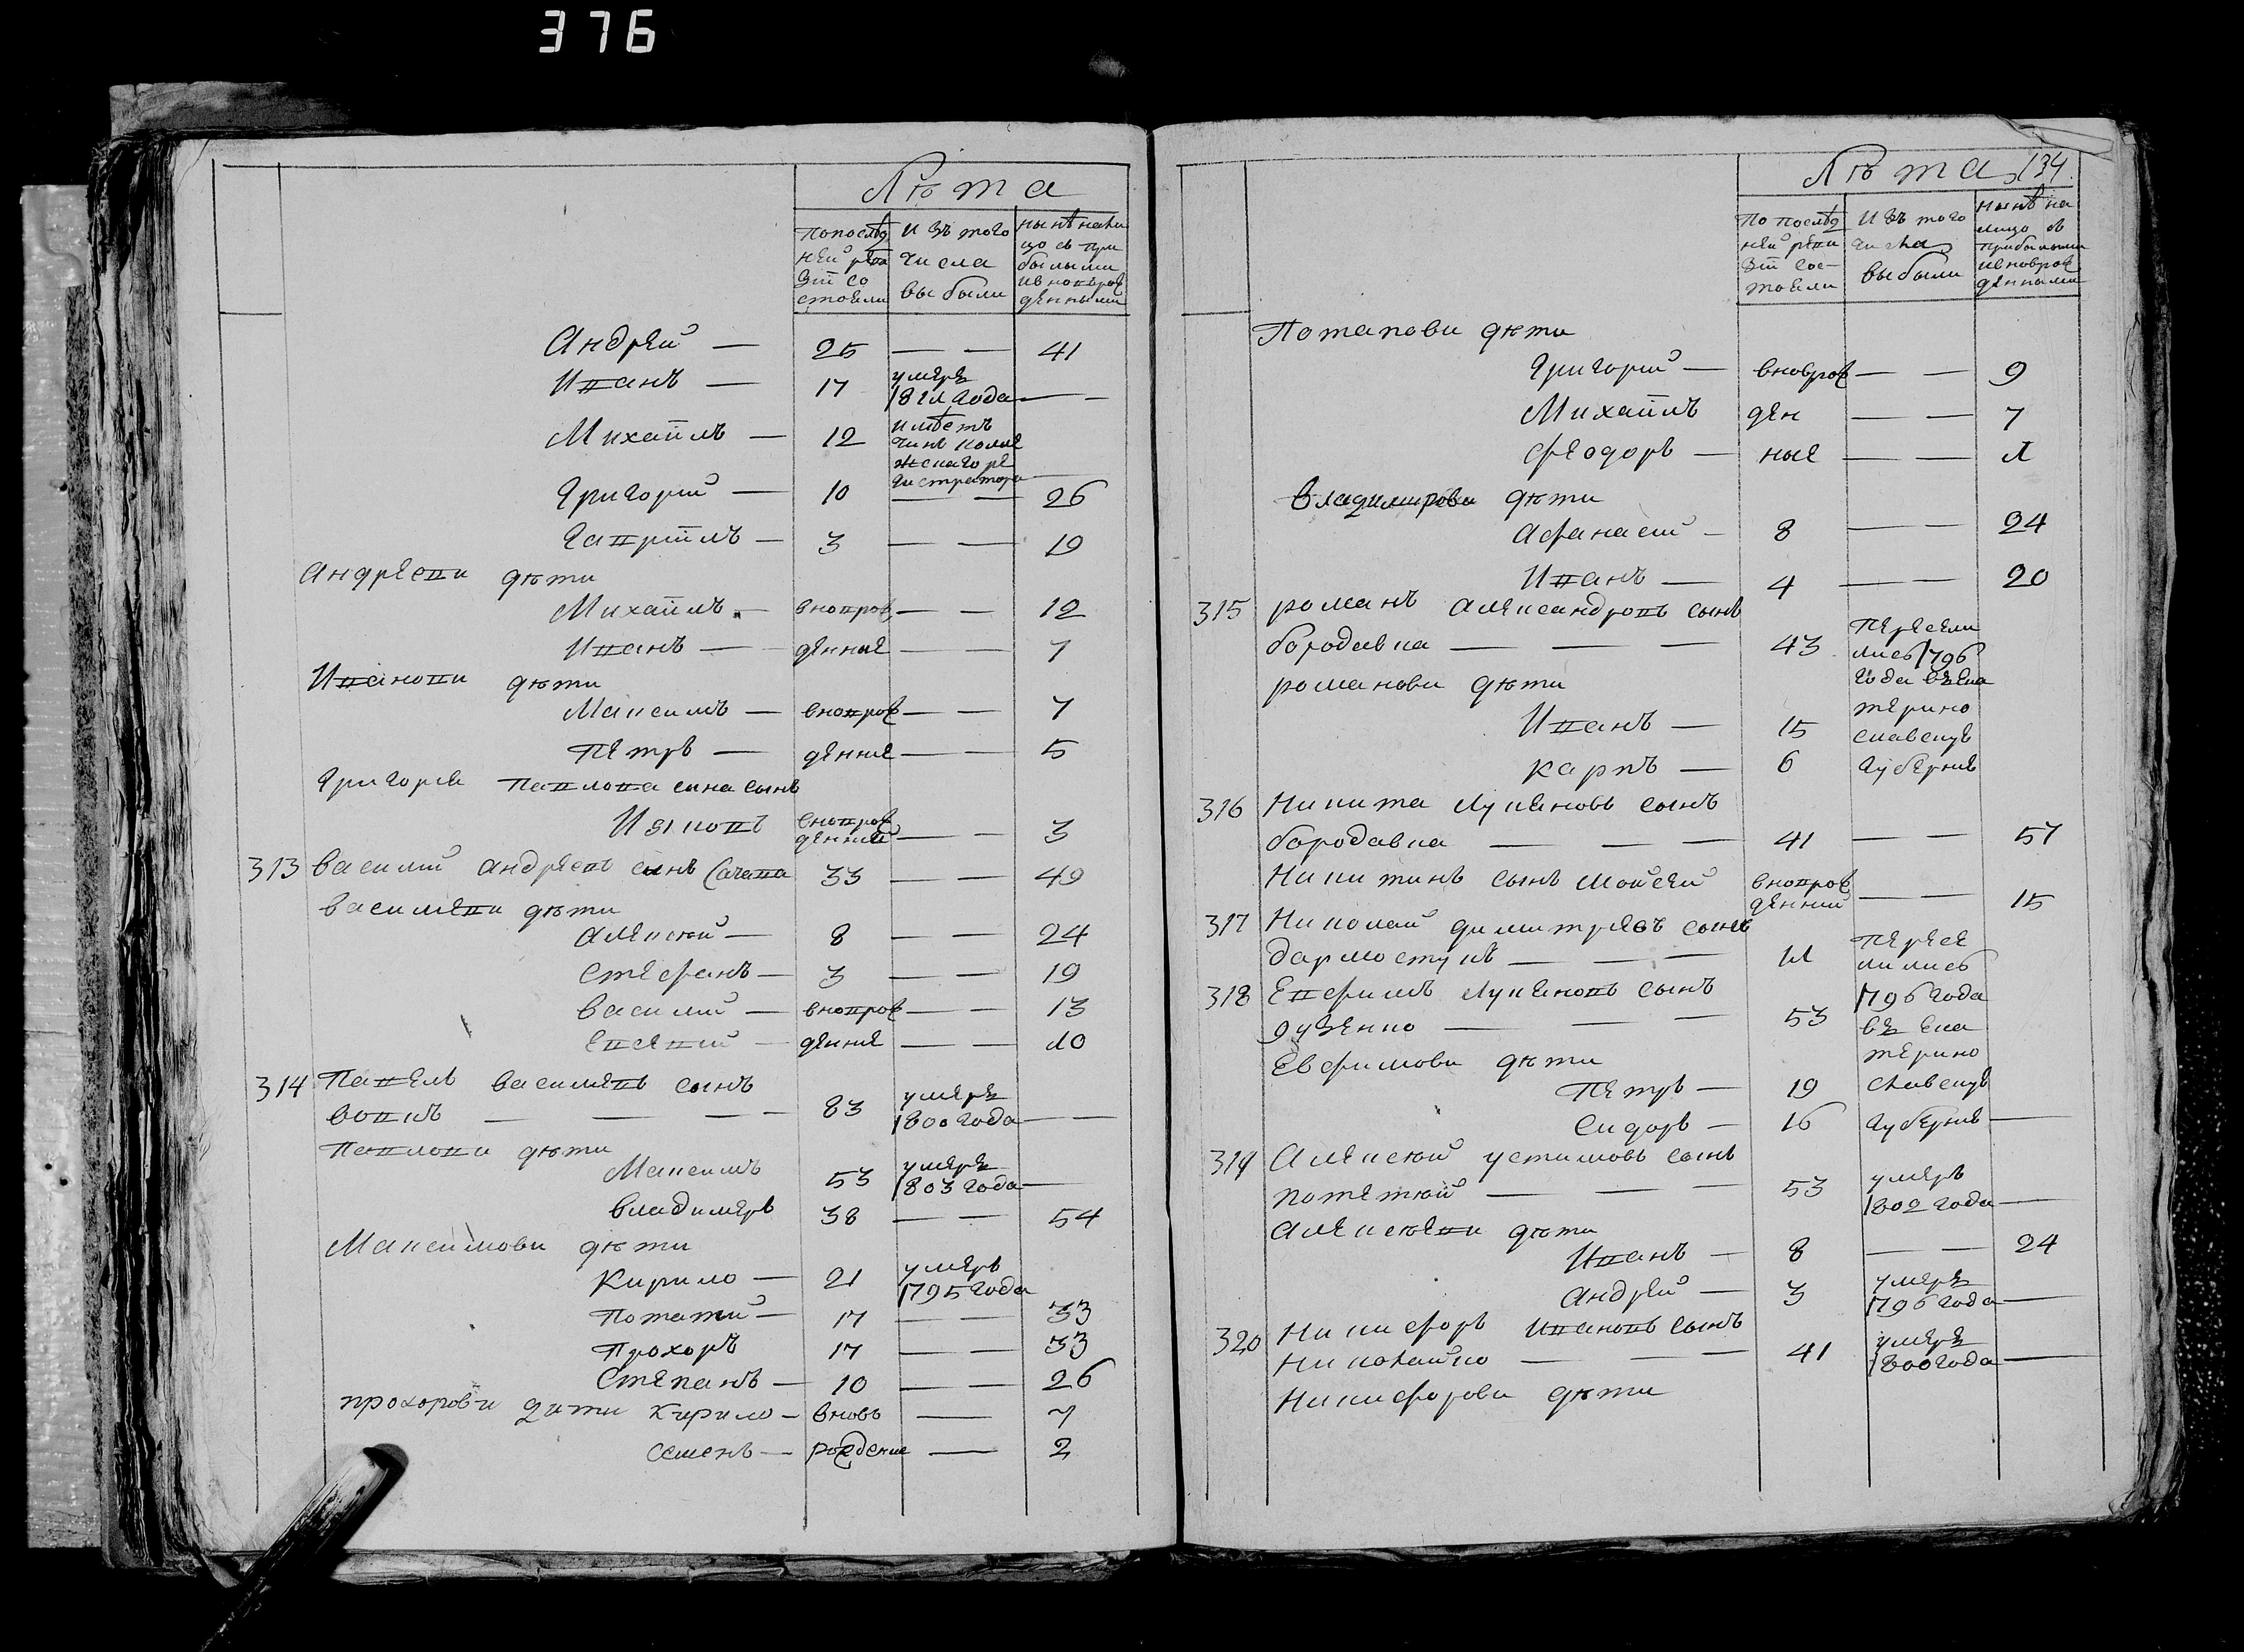 376
Лѣта
По послѣд
ней реви
зіи со
стояли
Изъ того
числа
выбыли
нынѣ на ли
цо съ при
былыми
и вновърож
денными
Андрей — 25 — — 41
Иванъ — 17 умеръ
1811 года — —
Михайлъ — 12 имѣетъ
чинъ колле
жскаго ре
гистратора —
Григорій — 10 — — 26
Гавріилъ — 3 — — 19
Андреєви дѣти
Михайлъ — вноврож — — 12
Иванъ — денние — — 7
Иванови дѣти
Максимъ — вноврож — — 7
Петръ — денние — — 5
Григорія Павлова сина сынъ
Ияковъ вноврож
денний — — 3
313 Василій Андреевъ синъ Сачава 33 — — 49
Василіеви дѣти
Алексѣй — 8 — — 24
Стефанъ — 3 — — 19
Василій — вноврож — — 13
Евсевій — денние — — 10
314 Павелъ Василіевъ сынъ
Вовкъ — — — — 83 умеръ
1800 года — —
Павлови дѣти
Максимъ 53 умеръ
1803 года —
Владимеръ 38 — — 54
Максимови дѣти
Кирило — 21 умеръ
1795 года
Потапій — 17 — — 33
Прохоръ 17 — — 33
Степанъ — 10 — — 26
Прохорови дити Кирило — вновъ — 7
Семенъ — рождение — 2
Лѣта 134
По послѣд
ней реви
зіи сос-
тояли
Изъ того
числа
выбыли
нынѣ на
лицо съ
прибылыми
и вноврож
денными
Потапови дѣти
Григорій — вноврож — — 9
Михаилъ ден — — 7
Феодоръ — ные — — 1
Владимирови дѣти
Афанасій — 8 — — 24
Иванъ — 4 — — 20
315 Романъ Александровъ сынъ
Бородавка — — — 43 пересели
лись 1796
года въ Ека
терино
славскую
губернію
Романови дѣти
Иванъ — 15
Карпъ — 6
316 Никита Лукяновъ сынъ
Бородавка — — — 41 — — 57
Никитинъ сынъ Мойсей вноврож
денний — — 15
317 Николай Димитріевъ сынъ
Дармостукъ — — — 11 пересе
лились
1796 года
въ Ека
терино
славскую
губернію —
318 Евфимъ Лукяновъ сынъ
Дуденко — — — 53
Евфимови дѣти
Петръ — 19
Сидоръ — 16
319 Алексѣй Устимовъ сынъ
Потетюй — — — 53 умеръ
1802 года —
Алексѣеви дѣти
Иванъ — 8 — — 24
Андрей — 3 умеръ
1796 года —
320 Никифоръ Ивановъ сынъ
Николайко — — — 41 умеръ
1800 года —
Никифорови дѣти